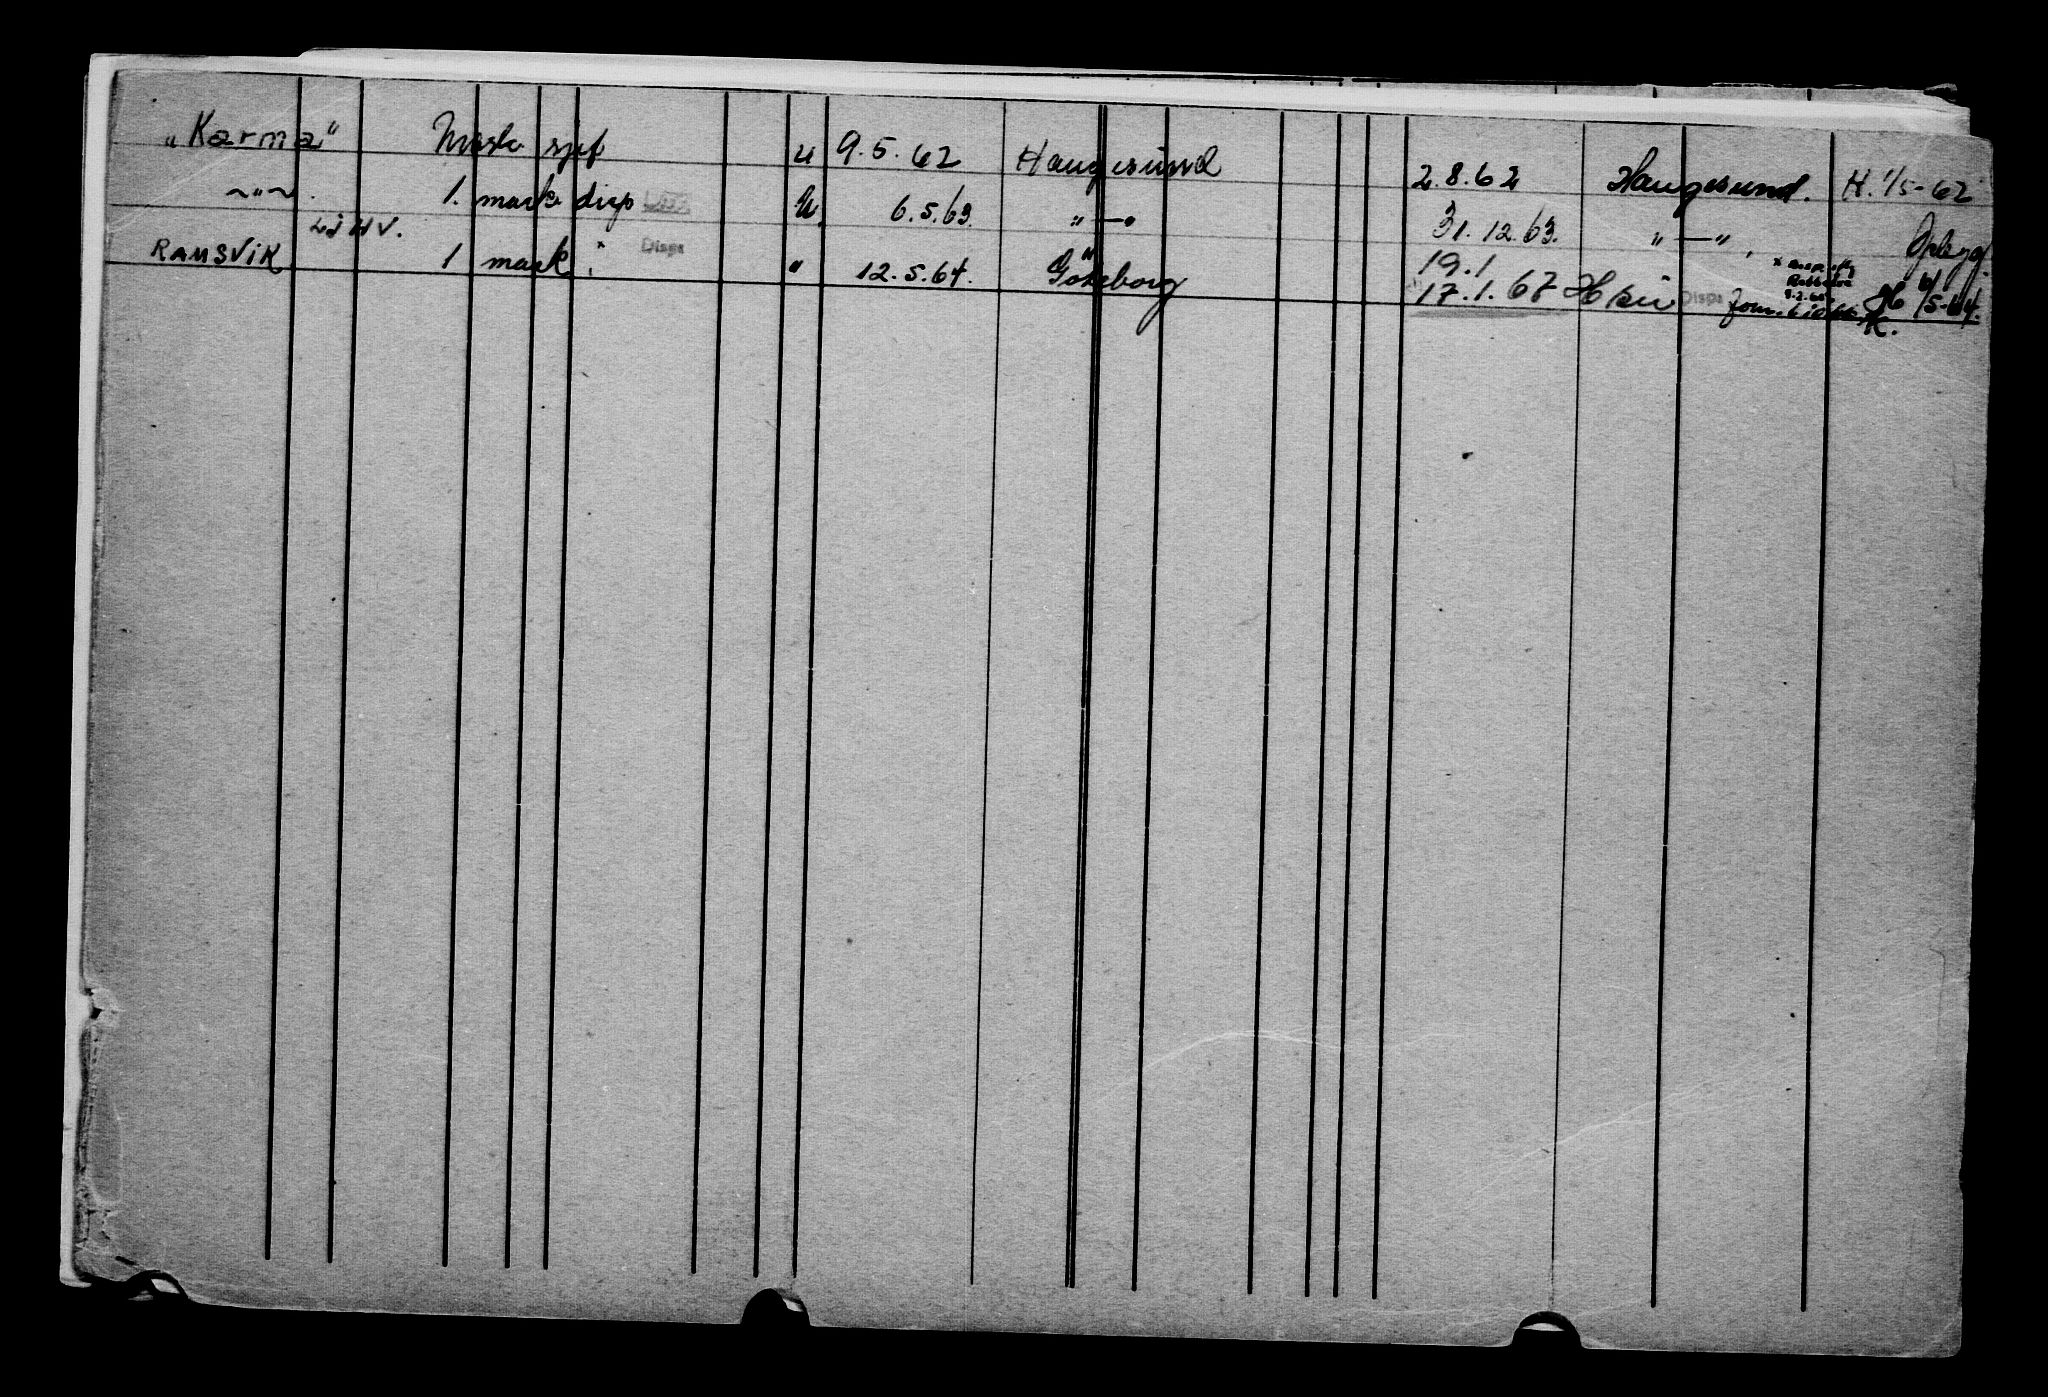 „Karma" Mask sjef u 9.5.62 Haugesund 2.8.62 Haugesund. H. 1/5-62
~"~. 1. mask disp U. 6.5.63 "—" 31.12.63. "—" Opplegg.
RAMSVIK LJHV. 1 mask " Disps " 12.5.64. Göteborg 19.1
17.1.67 Disps 5-64.
K.